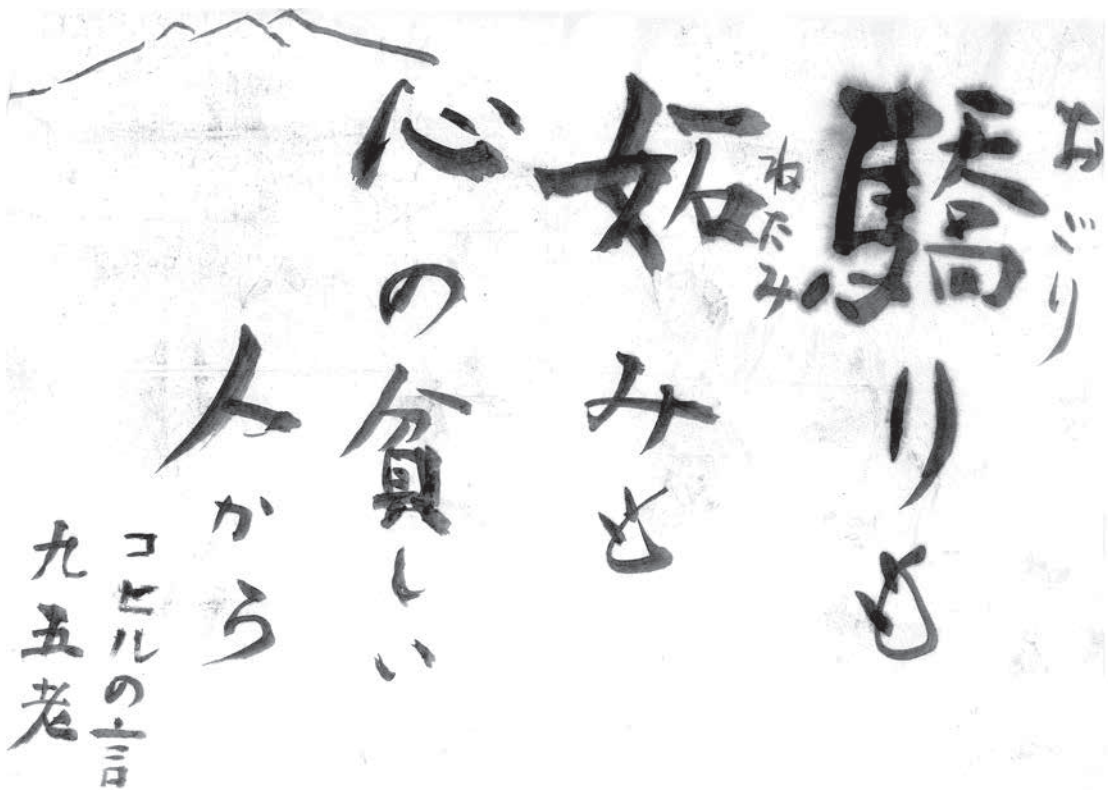 おごり
驕りも
ねたみ
妬みも
心の貧しい
人から
コヒルの言
九五老